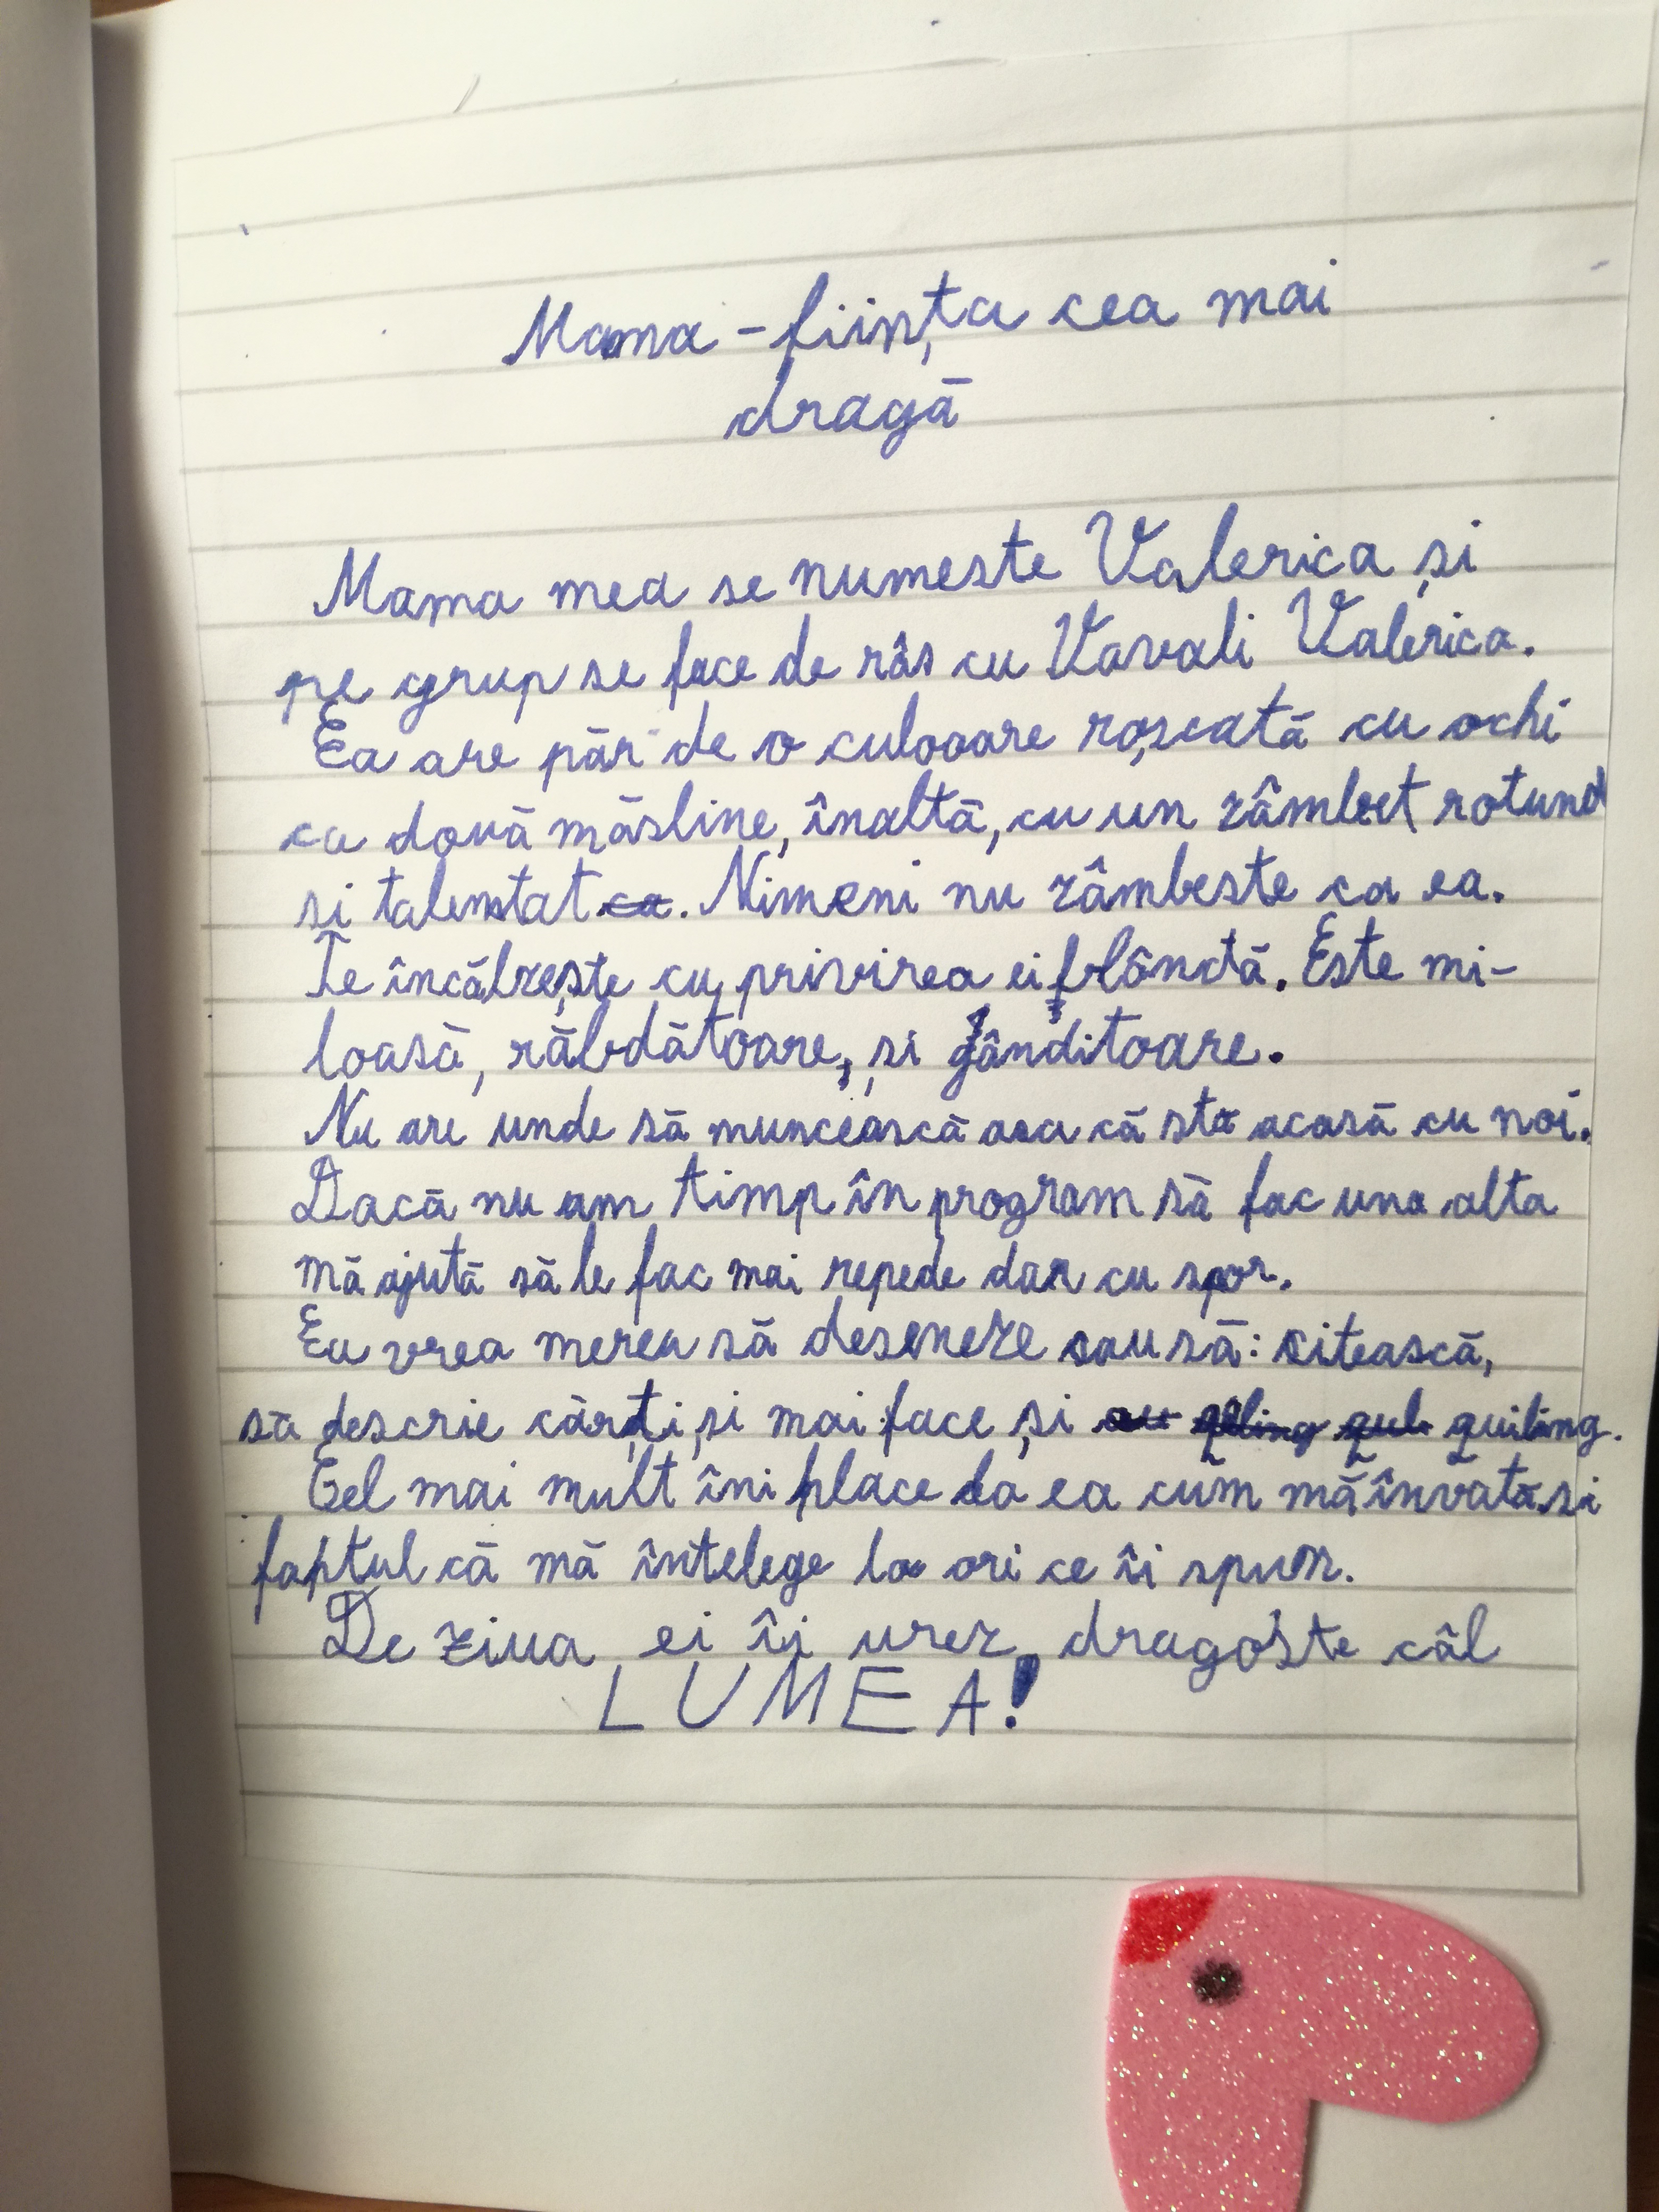 Mama - ființa cea mai
dragă
Mama mea se numeste Valerica și
pe grup se face de râs cu Vavali Valerica.
Ea are păr de o culooare roșcată cu ochi
ca două măsline, înaltă, cu un zâmbet rotund
si talentat. Nimeni nu zâmbeste ca ea.
Te încălzește cu privirea ei blândă. Este mi-
loasă, răbdătoare, și gânditoare.
Nu are unde să muncească asa că sta acasă cu noi.
Dacă nu am timp în program să fac una alta
mă ajută să le fac mai repede dar cu spor.
Ea vrea merea să deseneze sau să: citească,
să descrie cărți, si mai face și quiling.
Cel mai mult îni place la ea cum mă învată si
faptul că mă întelege la ori ce îi spun.
De ziua ei îi urez, dragoste câl
LUMEA!